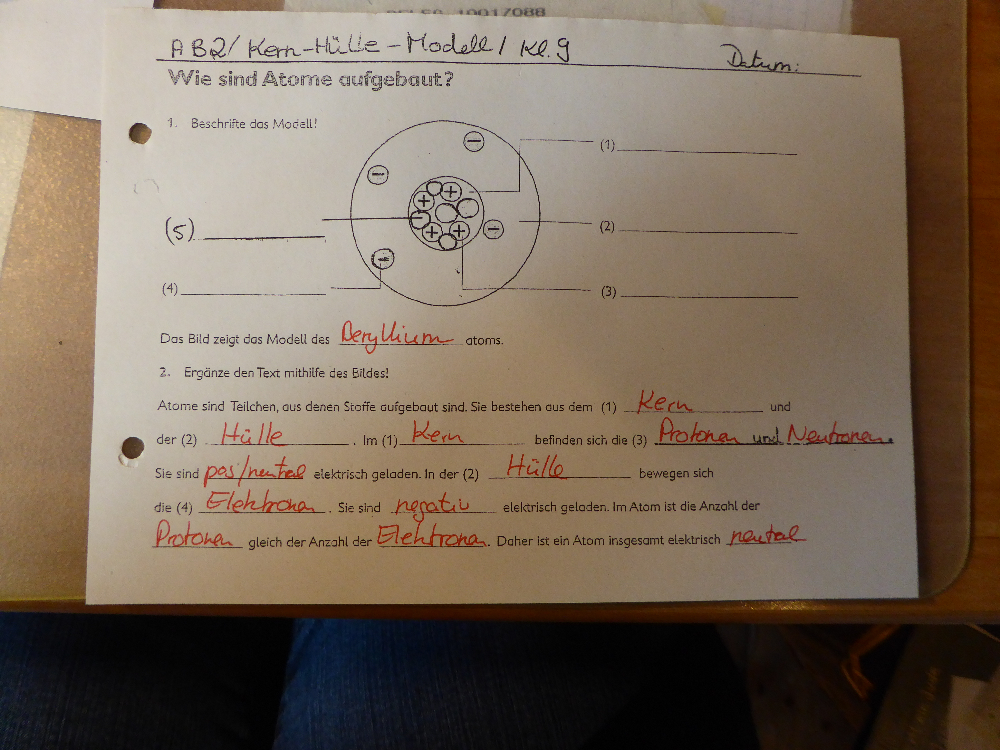 AB2/ Kern-Hülle-Modell/ Kl. 9
Datum:
Wie sind Atome aufgebaut?
1. Beschrifte das Modell!
(1)
(5)
(2)
(4)
(3)
Das Bild zeigt das Modell des Beryllium atoms.
2. Ergänze den Text mithilfe des Bildes!
Atome sind Teilchen, aus denen Stoffe aufgebaut sind. Sie bestehen aus dem (1) Kern und
der (2) Hülle . Im (1) Kern befinden sich die (3) Protonen und Neutronen.
Sie sind pos/neutral elektrisch geladen. In der (2) Hülle bewegen sich
die (4) Elektronen . Sie sind negativ elektrisch geladen. Im Atom ist die Anzahl der
Protonen gleich der Anzahl der Elektronen. Daher ist ein Atom insgesamt elektrisch neutral